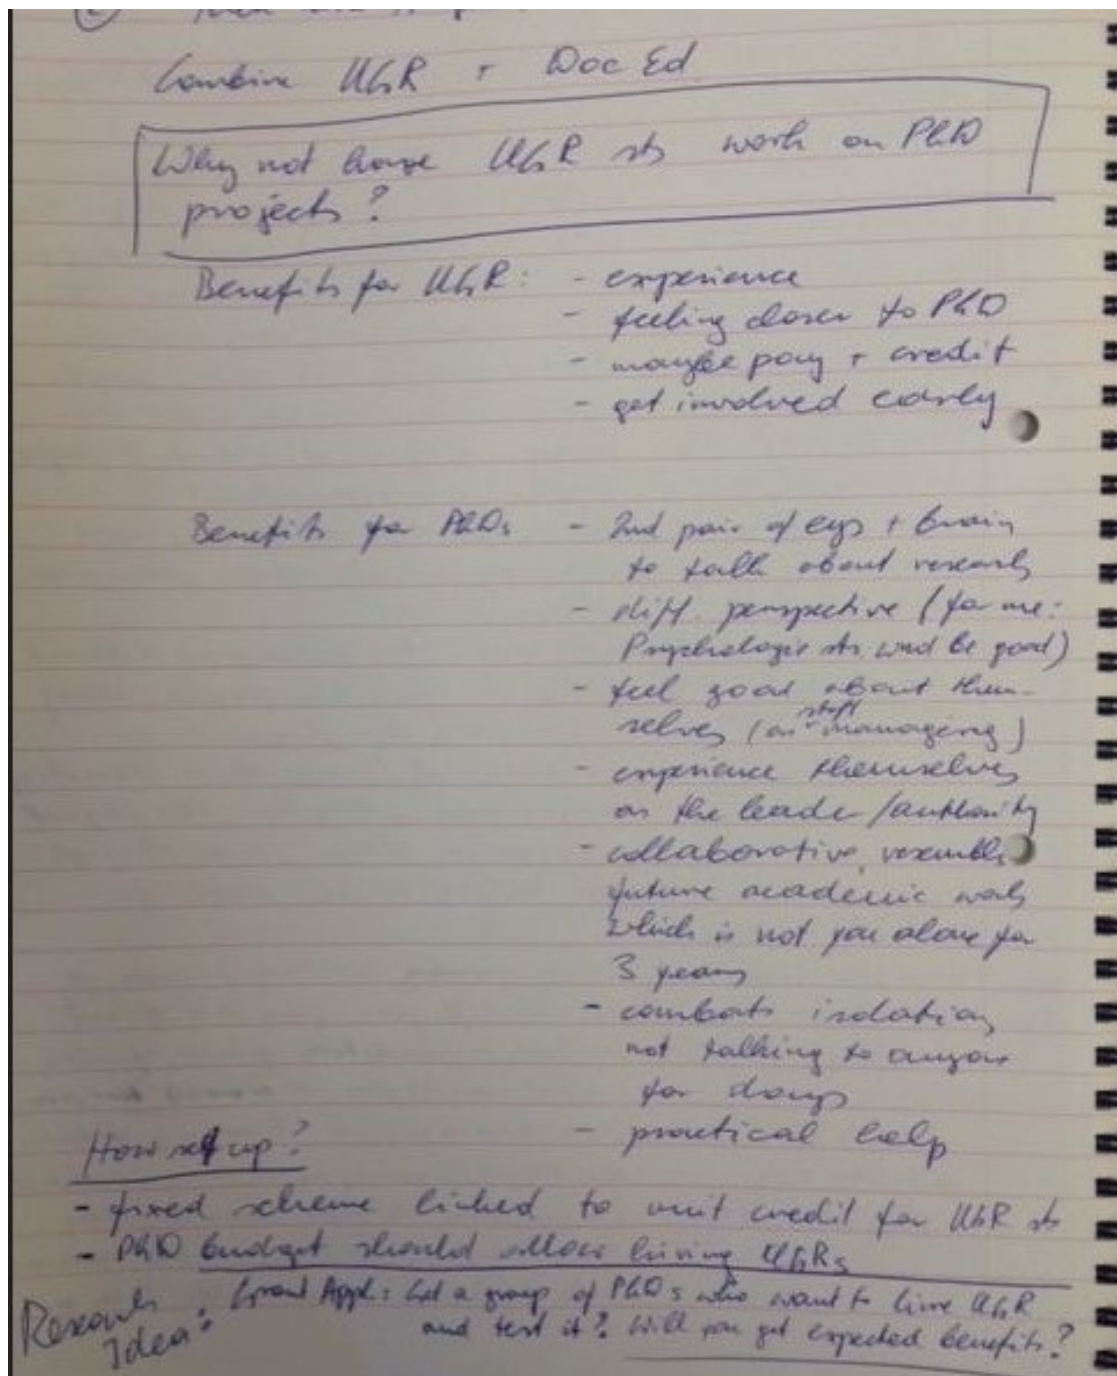 Combine UGR + Doc Ed
Why not have UGR sts work on PhD
projects?
Benefits for UGR: - experience
- feeling closer to PhD
- maybe pay + credit
- get involved early
Benefits for PhDs - 2nd pair of eys + brain
to talk about research
- diff. perspective (for me:
Psychologie sts. wud be good)
- feel good about them-
selves (as staff managing)
- experience themselves
as the leader/authority
- collaborative, resembles
future academic work
which is not you alone for
3 years
- combats isolation,
not talking to anyone
for days
- practical help
How set up?
- fixed scheme linked to unit credit for UGR sts
- PhD budget should allow hiring UGRs
Research Grant Appl: Get a group of PhDs who want to hire UGR
Idea: and test it? Will you get expected benefits?